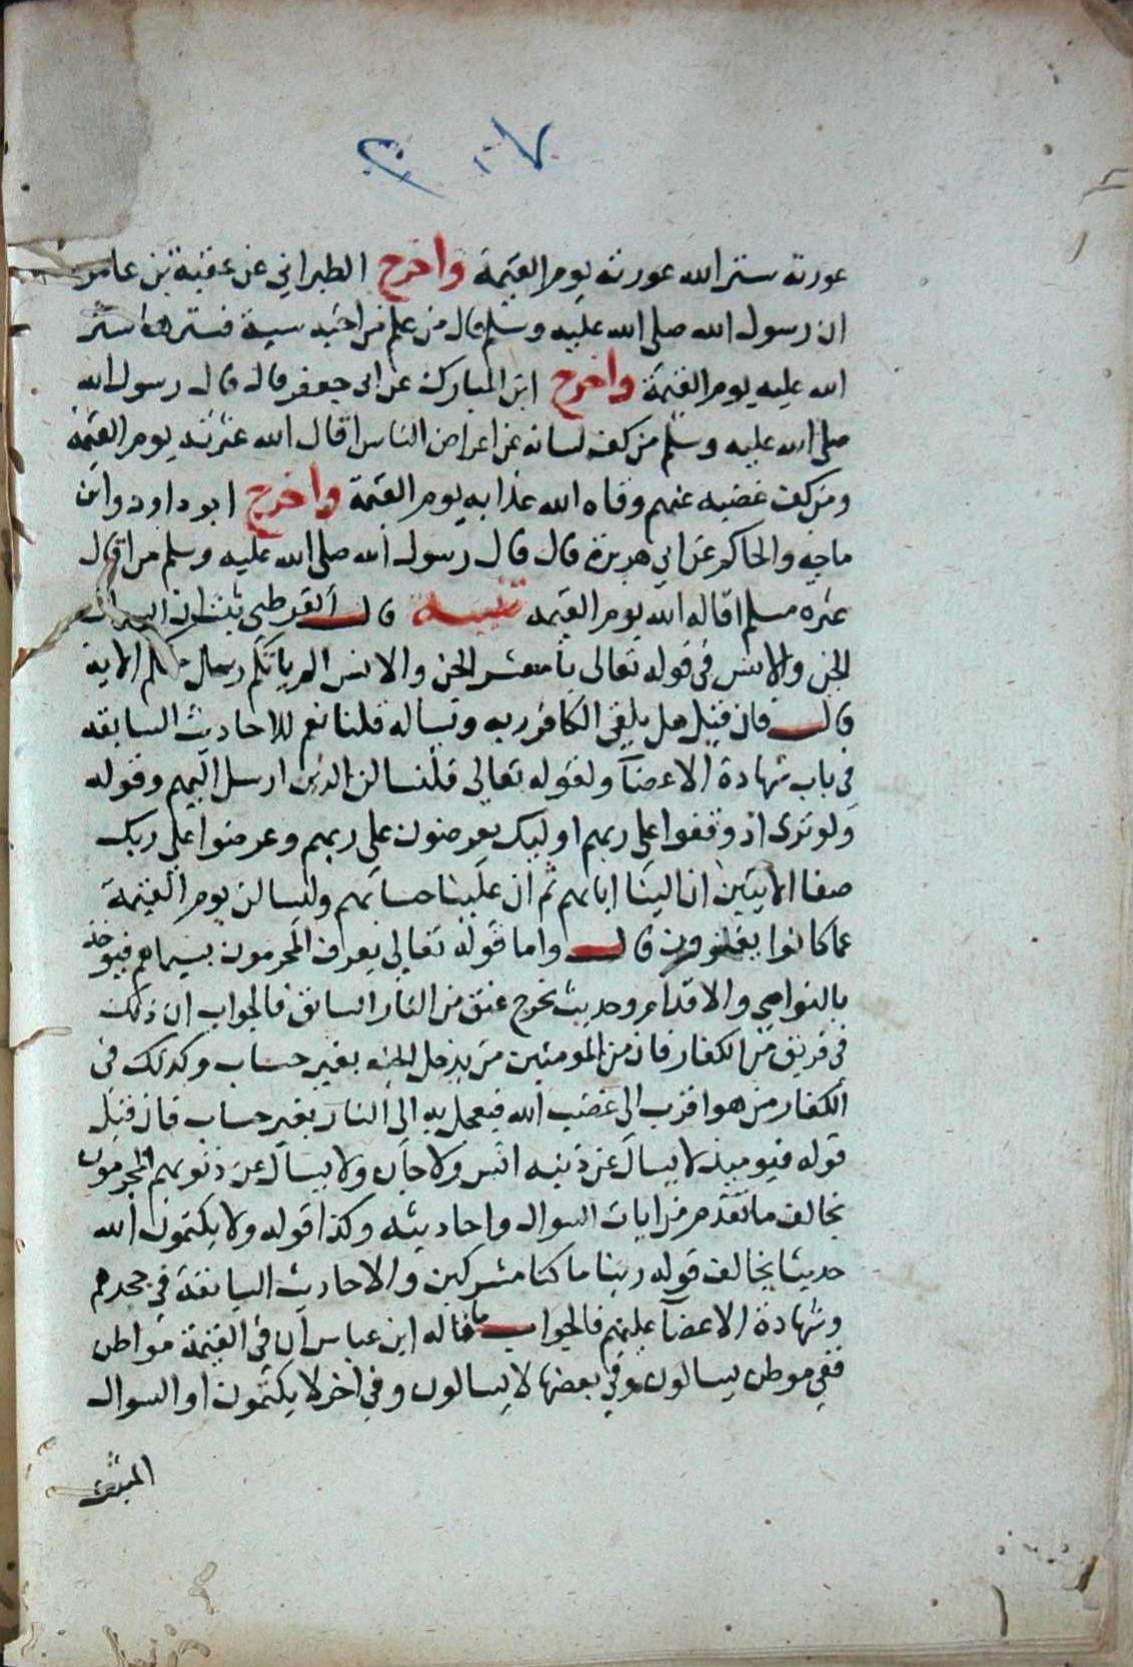 ٢٠٧
عورته ستر الله عورته يوم القيمة واخرج الطبراني عن عقبة بن عامر
ان رسول الله صلى الله عليه وسلم قال من علم من اخيه سيئة فسترها ستر
الله عليه يوم القيمة واخرج ابن المبارك عن ابي جعفر قال قال رسول الله
صلى الله عليه وسلم من كف لسانه عن اعراض الناس اقال الله عثرته يوم القيمة
ومن كف غضبه عنهم وقاه الله عذابه يوم القيمة واخرج ابو داود وابن
ماجه والحاكم عن ابي هريرة قال قال رسول الله صلى الله عليه وسلم من اقال
عثره مسلم اقاله الله يوم القيمه تنبيه قال القرطبي ثبت ان السوال
الجن والانس في قوله تعالى يا معشر الجن والانس الم ياتكم رسل منكم الاية
قال فان قيل هل يلقى الكافر ربه ويساله قلنا نعم للاحاديث السابقه
في باب شهادة الاعضآ ولقوله تعالى فلنسالن الذين ارسل اليهم وقوله
ولو ترى اذ وقفوا على ربهم اوليك يعرضون على ربهم وعرضوا على ربك
صفا الايتين ان الينا ايابهم ثم ان علينا حسابهم وليسالن يوم القيمة
عما كانوا يفترون قال واما قوله تعالى يعرف المجرمون بسيماهم فيوخذ
بالنواصي والاقدام وحديث تخرج عنق من النار السابق فالجواب ان ذلك
في فريق من الكفار فان من المومنين من يدخل الجنه بغير حساب وكذلك في
الكفار من هو اقرب الى غضب الله فيعجل به الى النار بغير حساب فان قيل
قوله فيوميذ لا يسال عن ذنبه انس ولا جان ولا يسال عن ذنوبهم المجرمون
يخالف ما تقدم من ايات السوال واحاديثه وكذا قوله ولا يكتمون الله
حديثا يخالف قوله ربنا ما كنا مشركين والاحاديث السابقة في جحدهم
وشهادة الاعضآ عليهم فالجواب ما قاله ابن عباس ان في القيمة مواطن
ففي موطن يسالون وفي بعضها لا يسالون وفي اخر لا يكتمون او السوال
المثبت